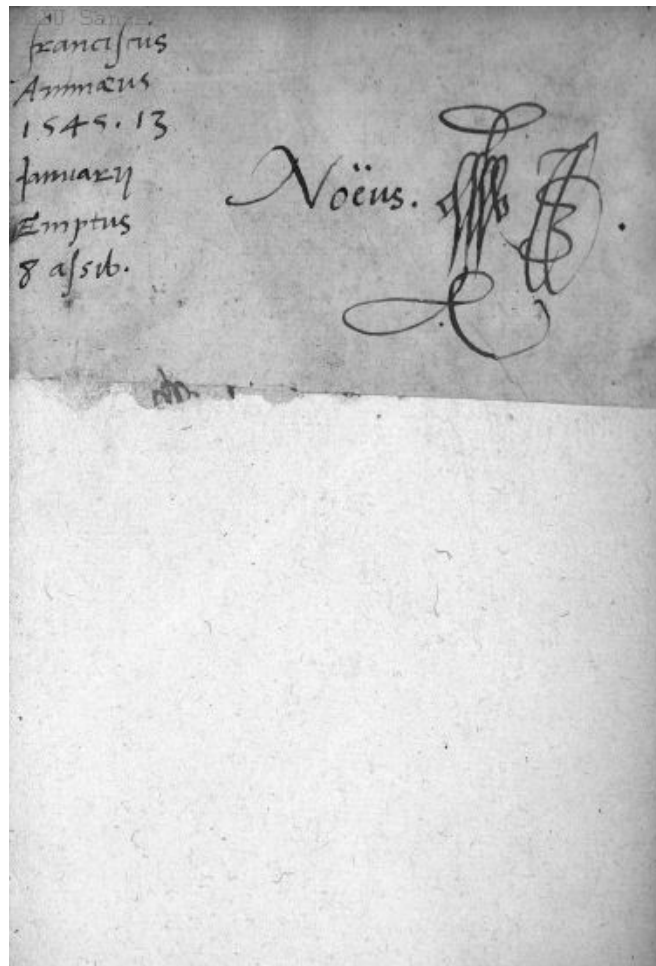 franciſcus
Annæus
1545. 13
Januarij
Emptus
8 aſsib.
Noëus.